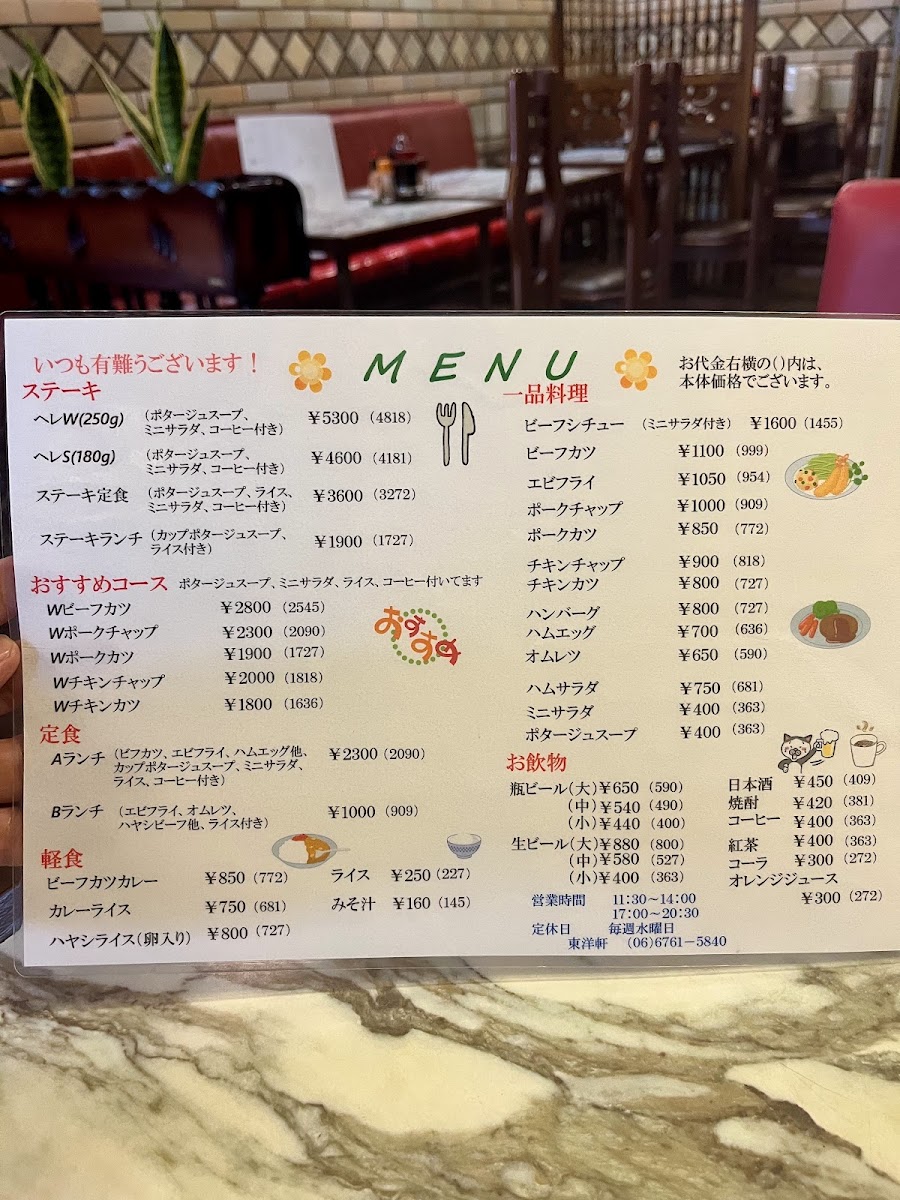 いつも有難うございます！
MENU
お代金右横の( )内は、
本体価格でございます。
ステーキ
ヘレW(250g) （ポタージュスープ、 ￥5300 (4818)
ミニサラダ、コーヒー付き）
ヘレS(180g) （ポタージュスープ、 ￥4600 (4181)
ミニサラダ、コーヒー付き）
ステーキ定食 （ポタージュスープ、ライス、 ￥3600 (3272)
ミニサラダ、コーヒー付き）
ステーキランチ （カップポタージュスープ、 ￥1900 (1727)
ライス付き）
おすすめコース ポタージュスープ、ミニサラダ、ライス、コーヒー付いてます
Wビーフカツ ￥2800 (2545)
Wポークチャップ ￥2300 (2090)
Wポークカツ ￥1900 (1727)
Wチキンチャップ ￥2000 (1818)
Wチキンカツ ￥1800 (1636)
おすすめ
定食
Aランチ （ビフカツ、エビフライ、ハムエッグ他、 ￥2300 (2090)
カップポタージュスープ、ミニサラダ、
ライス、コーヒー付き）
Bランチ （エビフライ、オムレツ、 ￥1000 (909)
ハヤシビーフ他、ライス付き）
軽食
ビーフカツカレー ￥850 (772)
カレーライス ￥750 (681)
ハヤシライス（卵入り） ￥800 (727)
ライス ￥250 (227)
みそ汁 ￥160 (145)
一品料理
ビーフシチュー （ミニサラダ付き） ￥1600 (1455)
ビーフカツ ￥1100 (999)
エビフライ ￥1050 (954)
ポークチャップ ￥1000 (909)
ポークカツ ￥850 (772)
チキンチャップ ￥900 (818)
チキンカツ ￥800 (727)
ハンバーグ ￥800 (727)
ハムエッグ ￥700 (636)
オムレツ ￥650 (590)
ハムサラダ ￥750 (681)
ミニサラダ ￥400 (363)
ポタージュスープ ￥400 (363)
お飲物
瓶ビール（大）￥650 (590)
（中）￥540 (490)
（小）￥440 (400)
生ビール（大）￥880 (800)
（中）￥580 (527)
（小）￥400 (363)
日本酒 ￥450 (409)
焼酎 ￥420 (381)
コーヒー ￥400 (363)
紅茶 ￥400 (363)
コーラ ￥300 (272)
オレンジジュース
￥300 (272)
営業時間 11:30～14:00
17:00～20:30
定休日 毎週水曜日
東洋軒 (06)6761－5840